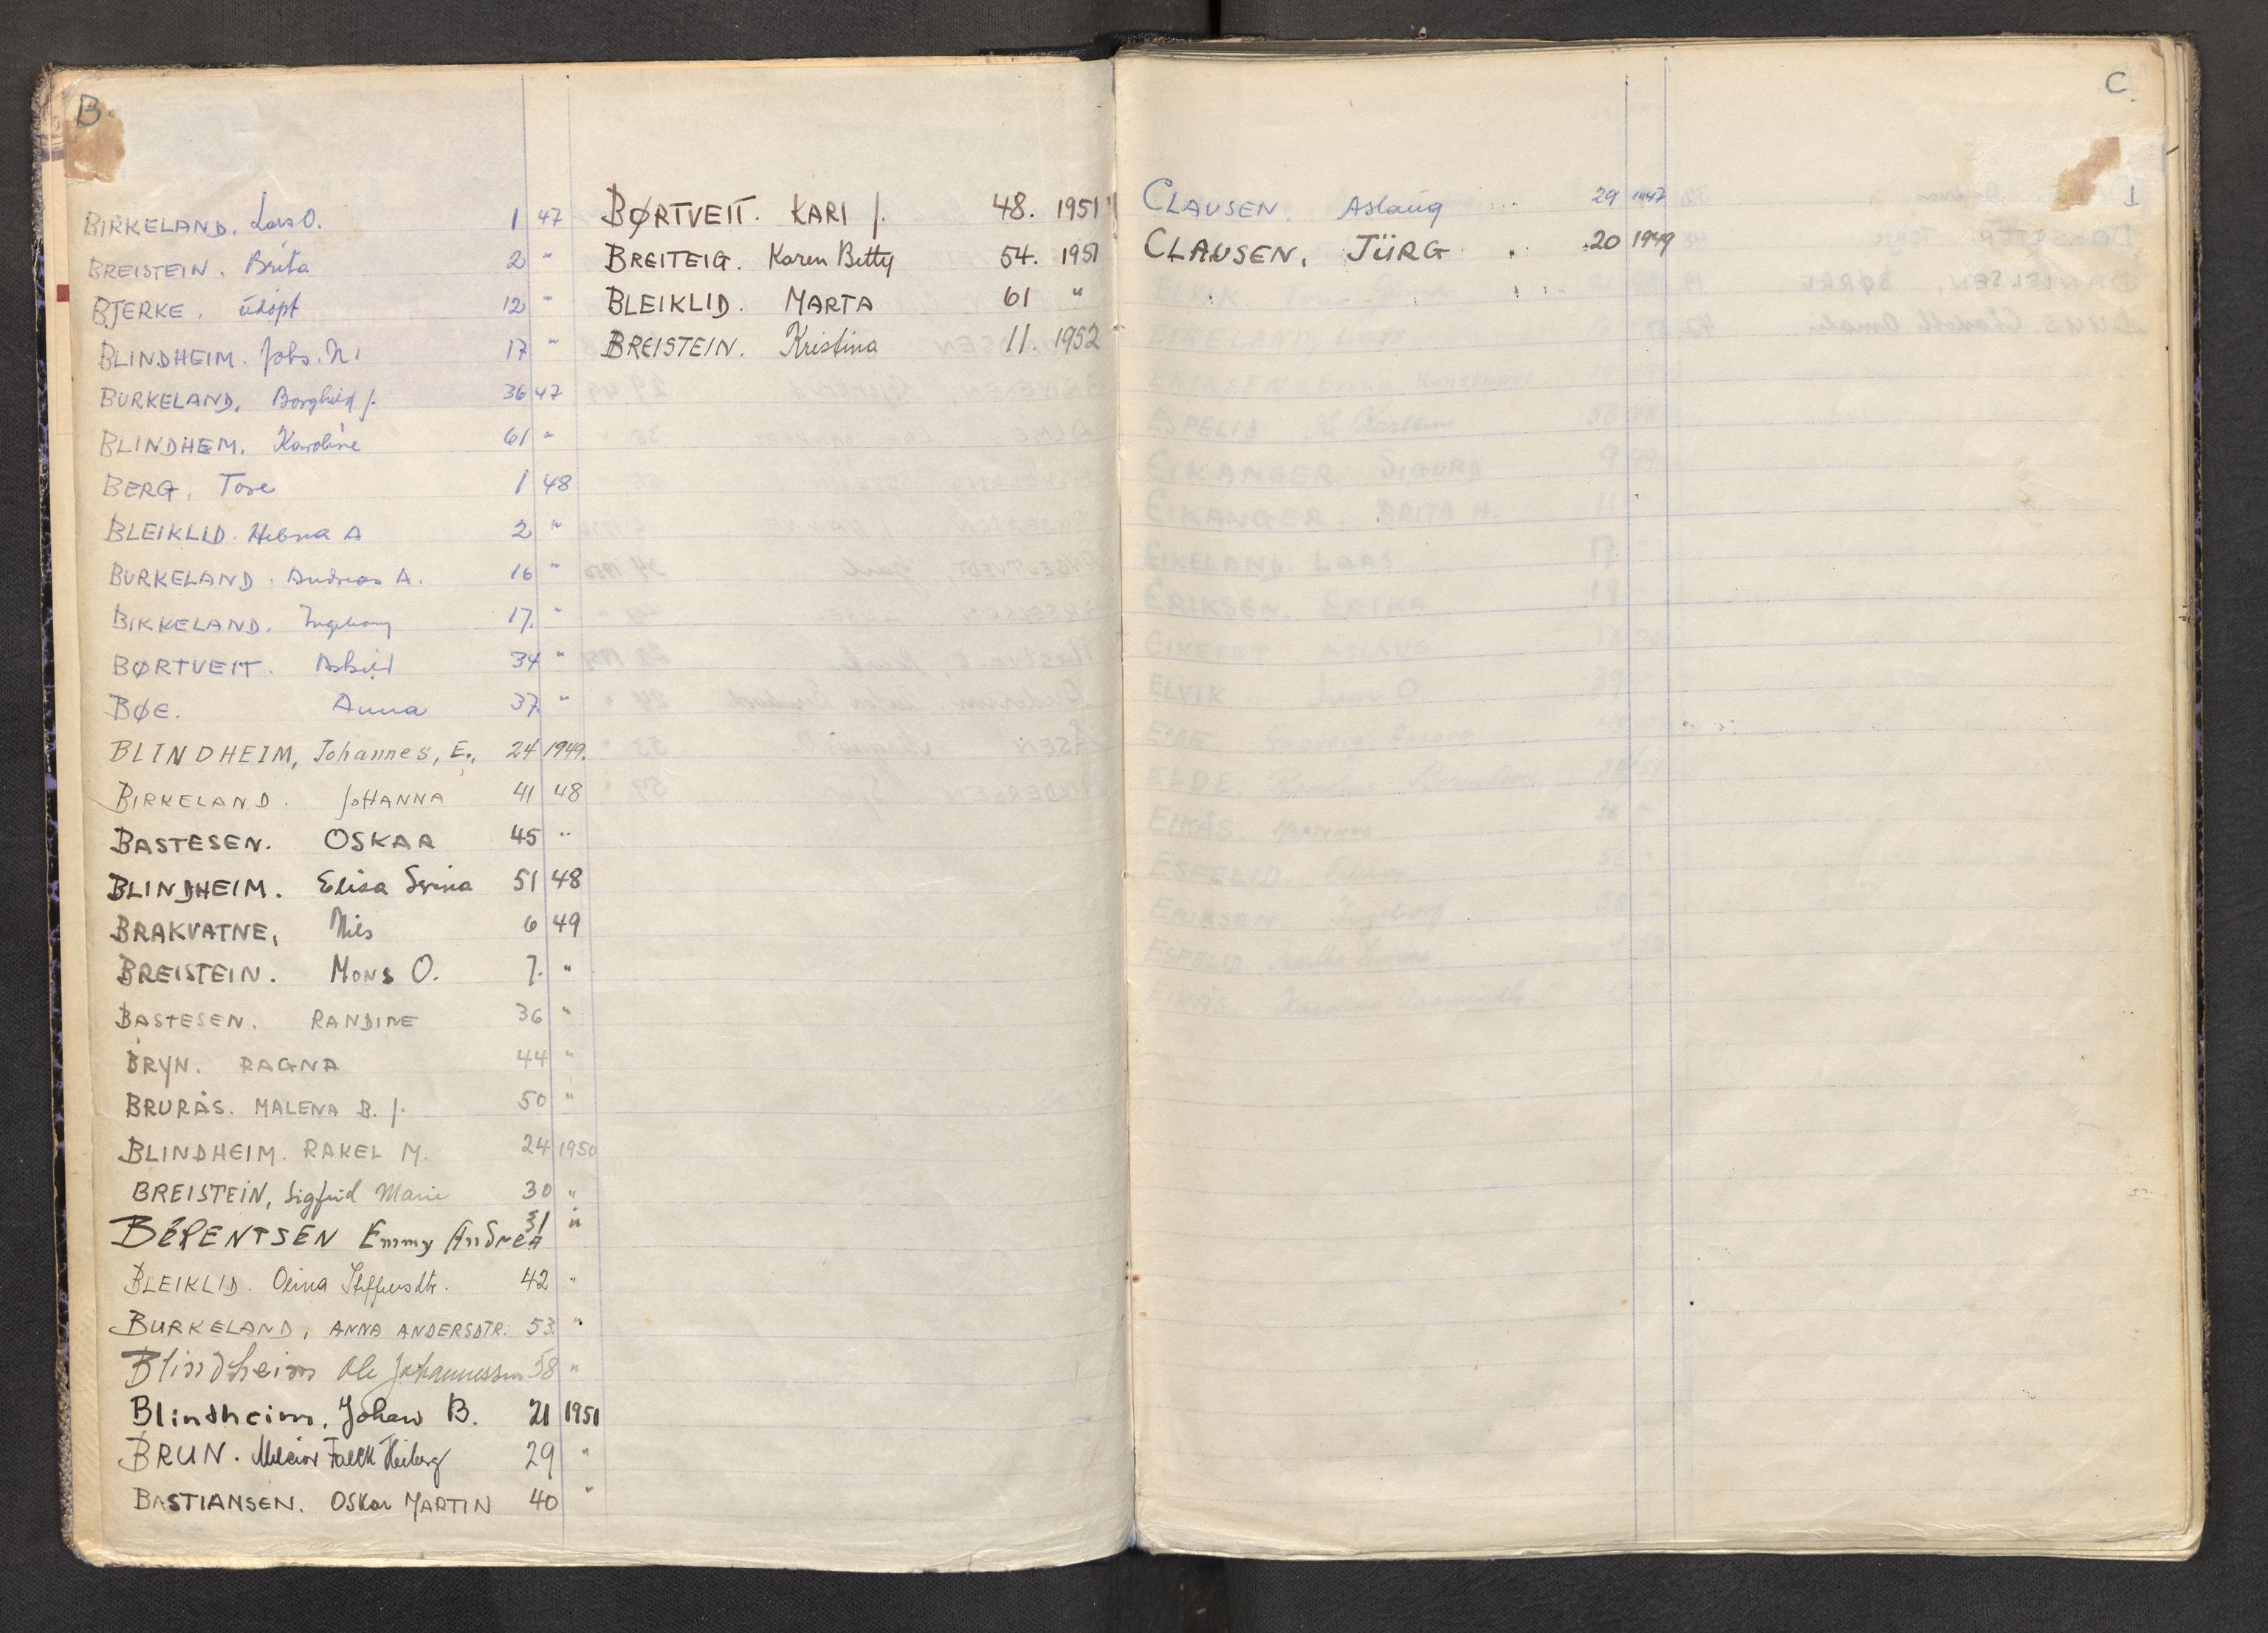 B.
BIRKELAND. Lars O. 1 47
BREISTEIN. Brita 2 "
BJERKE. udøpt 12 "
BLINDHEIM. Johs. N. 17 "
BURKELAND. Borghild J. 36 47
BLINDHEM. Karoline 61 "
BERG, Tore 1 48
BLEIKLID. Helena A 2 "
BURKELAND. Andreas A. 16 "
BIRKELAND. Ingeborg 17. "
BØRTVEIT. 34 "
BØE. Anna 37. "
BLINDHEIM, Johannes, E., 24 1949.
BIRKELAND. JOHANNA 41 48
BASTESEN. OSKAR 45 "
BLINDHEIM. Elisa Serina 51 48
BRAKVATNE, Nils 6 49
BREISTEIN. MONS O. 7. "
BASTESEN. RANDINE 36 "
BRYN. RAGNA 44 "
BRURÅS. MALENA B. J. 50 "
BLINDHEIM. RAKEL M. 24 1950
BREISTEIN, Sigfrid Marie 30 "
BERENTSEN Emmy Andrea 31 "
BLEIKLID. Steffensdtr. 42 "
BURKELAND, ANNA ANDERSDTR. 53. "
Blindheim Ole Johannessen 58 "
Blindheim. Johan B. 21 1951
BRUN. Falck Heiberg 29 "
BASTIANSEN. OSKar MARTIN 40 "
BØRTVEIT. KARI J. 48. 1951
BREITEIG. Karen Betty 54. 1951
BLEIKLID. MARTA 61 "
BREISTEIN. Kristina 11. 1952
C.
CLAUSEN. Aslaug 29 1947
CLAUSEN. JÜRG 20 1949